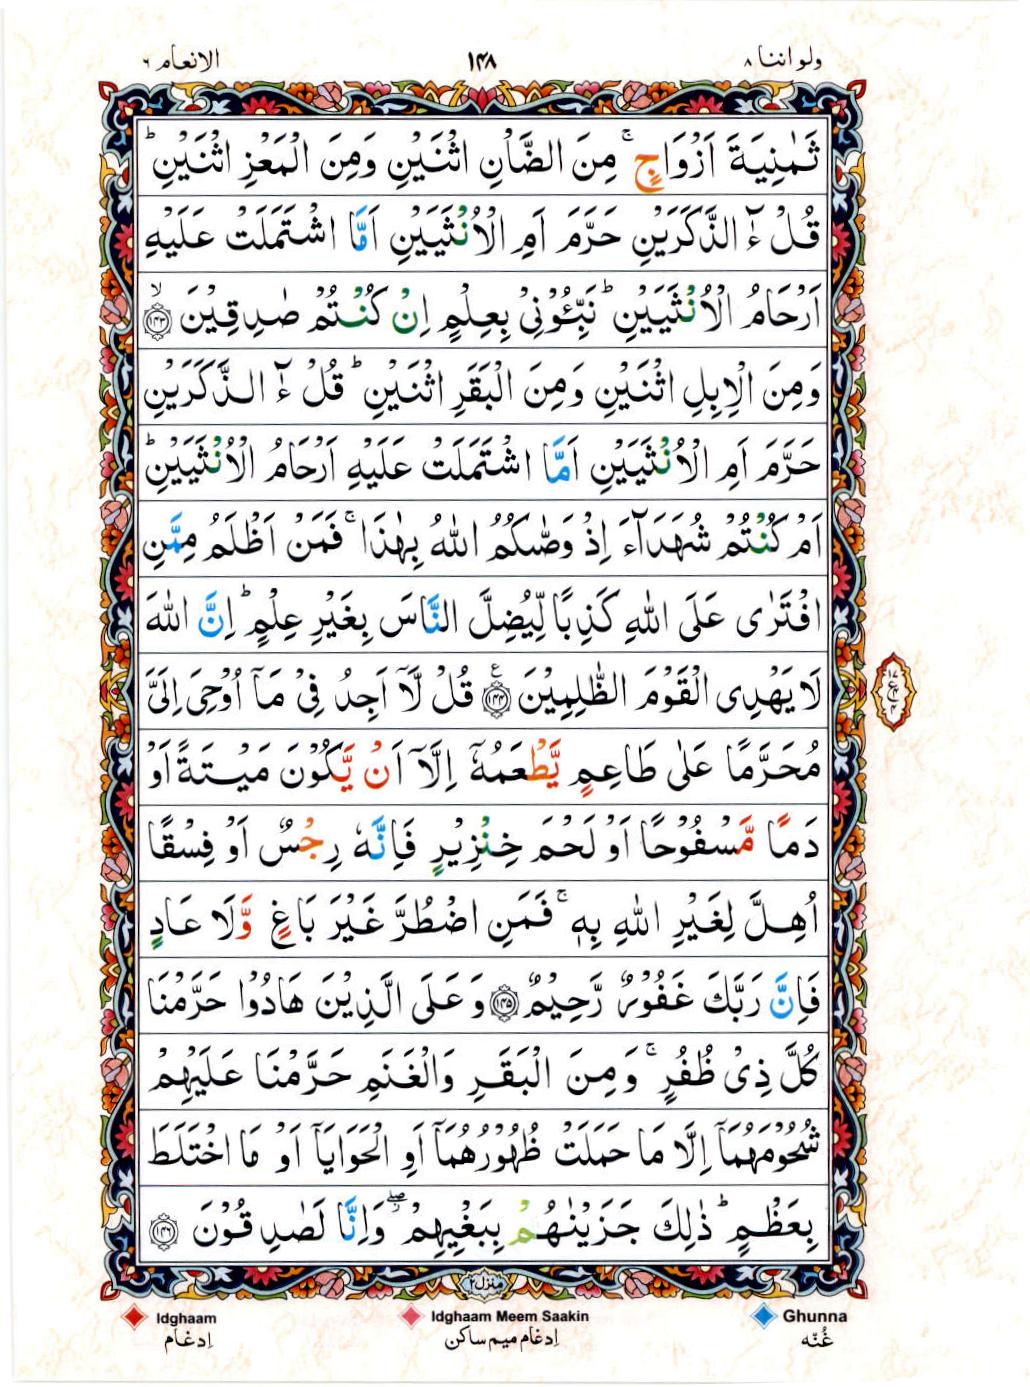 ولو اننا ٨
١٤٨
الانعام ٦
ثَمٰنِیَةَ اَزْوَاجٍ ۚ مِنَ الضَّاْنِ اثْنَیْنِ وَمِنَ الْمَعْزِ اثْنَیْنِ ؕ
قُلْ ءٰٓ الذَّكَرَیْنِ حَرَّمَ اَمِ الْاُنْثَیَیْنِ اَمَّا اشْتَمَلَتْ عَلَیْهِ
اَرْحَامُ الْاُنْثَیَیْنِ ؕ نَبِّـُٔوْنِیْ بِعِلْمٍ اِنْ كُنْتُمْ صٰدِقِیْنَ ۙ﴿۱۴۳﴾
وَمِنَ الْاِبِلِ اثْنَیْنِ وَمِنَ الْبَقَرِ اثْنَیْنِ ؕ قُلْ ءٰٓ الذَّكَرَیْنِ
حَرَّمَ اَمِ الْاُنْثَیَیْنِ اَمَّا اشْتَمَلَتْ عَلَیْهِ اَرْحَامُ الْاُنْثَیَیْنِ ؕ
اَمْ كُنْتُمْ شُهَدَآءَ اِذْ وَصّٰىكُمُ اللّٰهُ بِهٰذَا ۚ فَمَنْ اَظْلَمُ مِمَّنِ
افْتَرٰی عَلَی اللّٰهِ كَذِبًا لِّیُضِلَّ النَّاسَ بِغَیْرِ عِلْمٍ ؕ اِنَّ اللّٰهَ
لَا یَهْدِی الْقَوْمَ الظّٰلِمِیْنَ ﴿۱۴۴﴾ ع قُلْ لَّاۤ اَجِدُ فِیْ مَاۤ اُوْحِیَ اِلَیَّ
مُحَرَّمًا عَلٰی طَاعِمٍ یَّطْعَمُهٗۤ اِلَّاۤ اَنْ یَّكُوْنَ مَیْتَةً اَوْ
دَمًا مَّسْفُوْحًا اَوْ لَحْمَ خِنْزِیْرٍ فَاِنَّهٗ رِجْسٌ اَوْ فِسْقًا
اُهِلَّ لِغَیْرِ اللّٰهِ بِهٖ ۚ فَمَنِ اضْطُرَّ غَیْرَ بَاغٍ وَّلَا عَادٍ
فَاِنَّ رَبَّكَ غَفُوْرٌ رَّحِیْمٌ ﴿۱۴۵﴾ وَعَلَی الَّذِیْنَ هَادُوْا حَرَّمْنَا
كُلَّ ذِیْ ظُفُرٍ ۚ وَمِنَ الْبَقَرِ وَالْغَنَمِ حَرَّمْنَا عَلَیْهِمْ
شُحُوْمَهُمَاۤ اِلَّا مَا حَمَلَتْ ظُهُوْرُهُمَاۤ اَوِ الْحَوَایَاۤ اَوْ مَا اخْتَلَطَ
بِعَظْمٍ ؕ ذٰلِكَ جَزَیْنٰهُمْ بِبَغْیِهِمْ ۖ٘ وَاِنَّا لَصٰدِقُوْنَ ﴿۱۴۶﴾
منزل ٢
Idghaam
Idghaam Meem Saakin
Ghunna
اِدغام
اِدغام میم ساکن
غُنّه